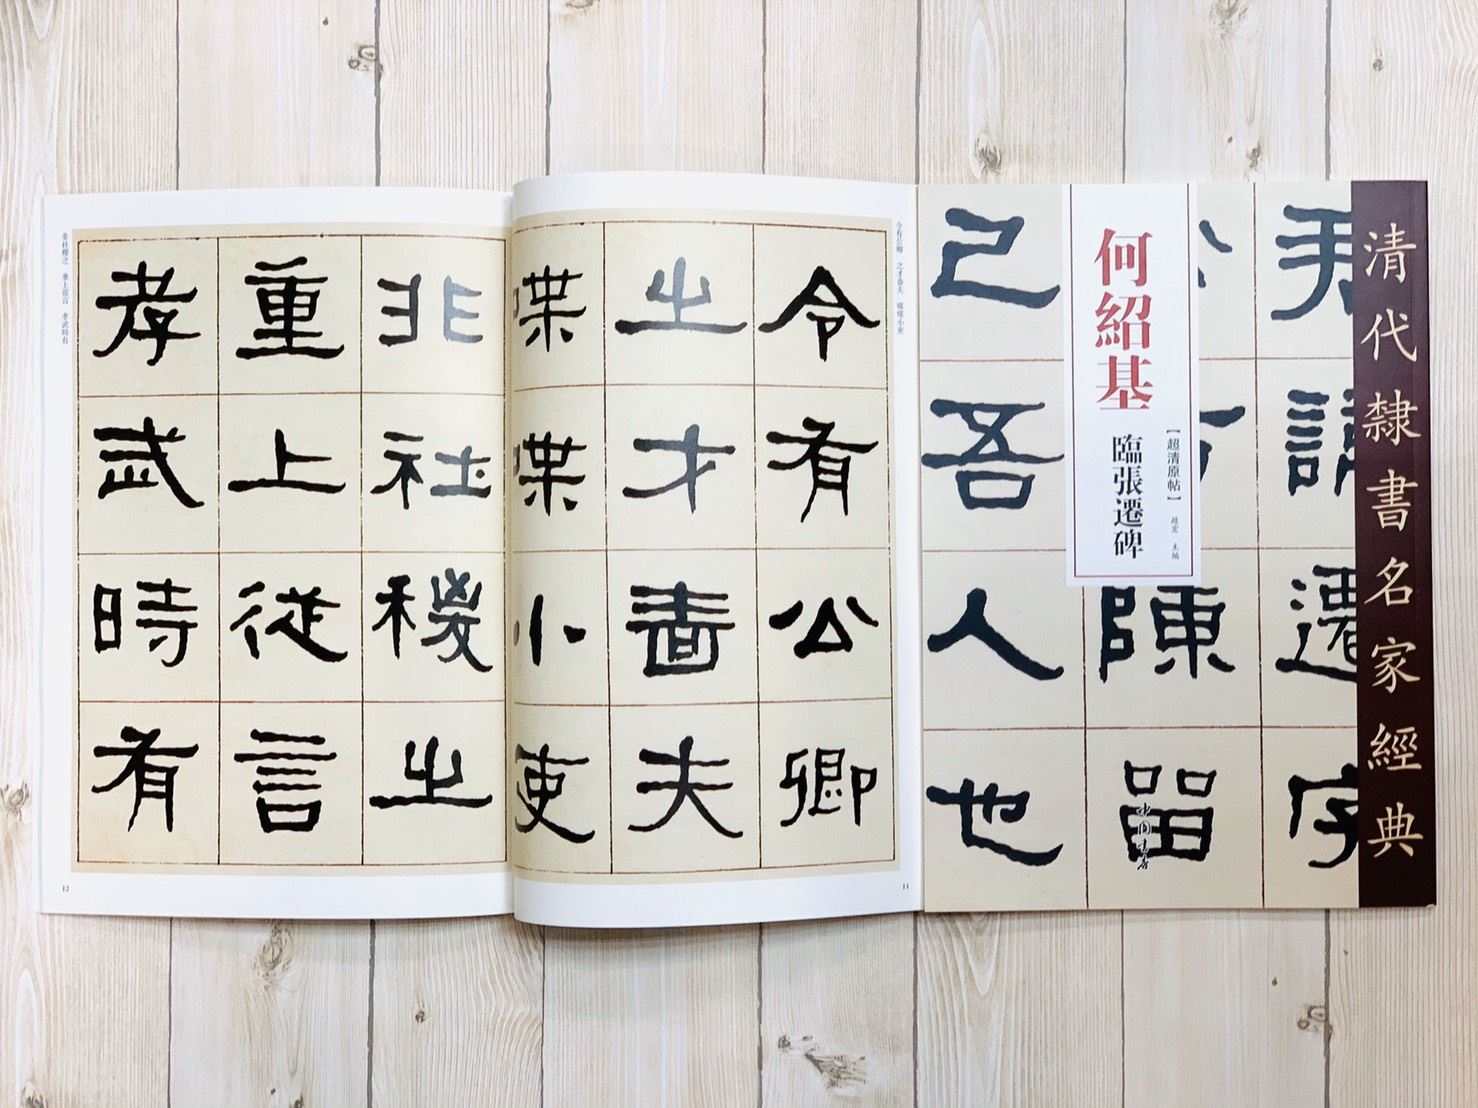 清代隸書名家經典
君諱遷字
公方陳留
己吾人也
何紹基
臨張遷碑
【超清原帖】
趙宏 主編
中国书店
令有公卿 之才嗇夫 喋喋小吏
令有公卿
之才嗇夫
喋喋小吏
11
非社稷之
重上從言
孝武時有
非社稷之 重上從言 孝武時有
12